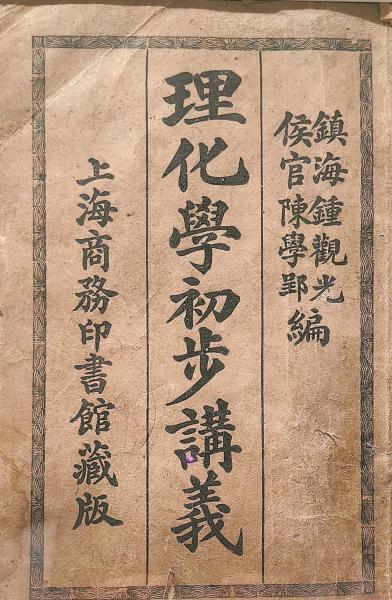 鎮海鍾觀光
侯官陳學郢編
理化學初步講義
上海商務印書館藏版